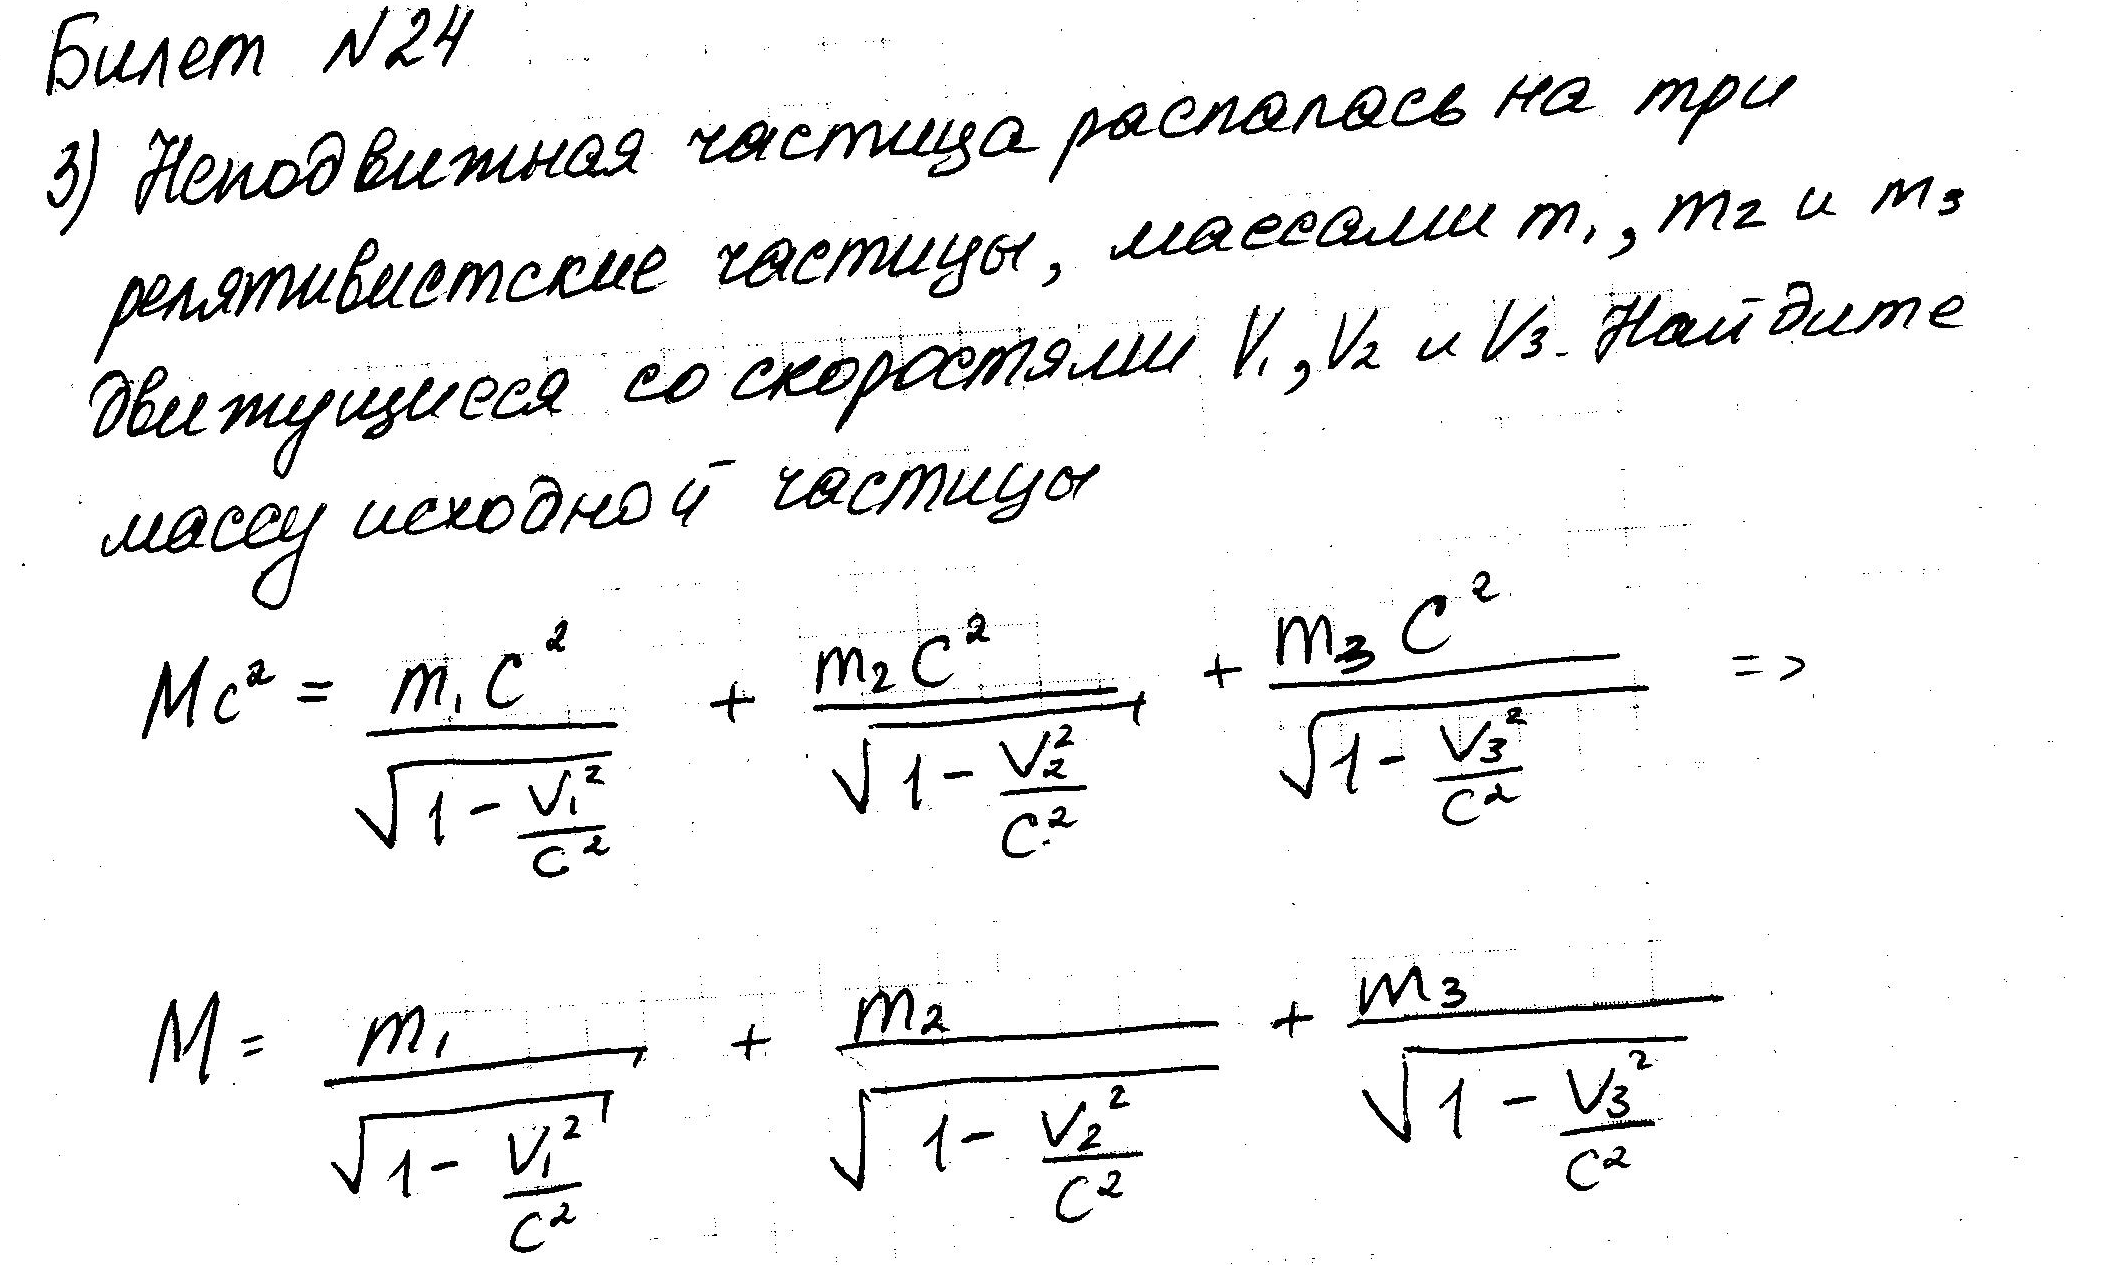 Билет №24
3) Неподвижная частица распалась на три
релятивистские частицы, массами m₁, m₂ и m₃
движущиеся со скоростями V₁, V₂ и V₃. Найдите
массу исходной частицы
Mc² = m₁c² / √(1 - V₁²/c²) + m₂c² / √(1 - V₂²/c²) + m₃c² / √(1 - V₃²/c²) =>
M = m₁ / √(1 - V₁²/c²) + m₂ / √(1 - V₂²/c²) + m₃ / √(1 - V₃²/c²)